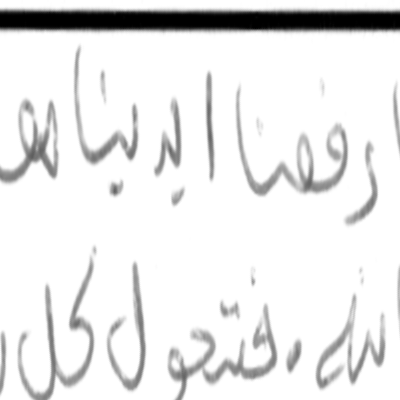 رفعنا ايدينا
الله ، فتحول كل